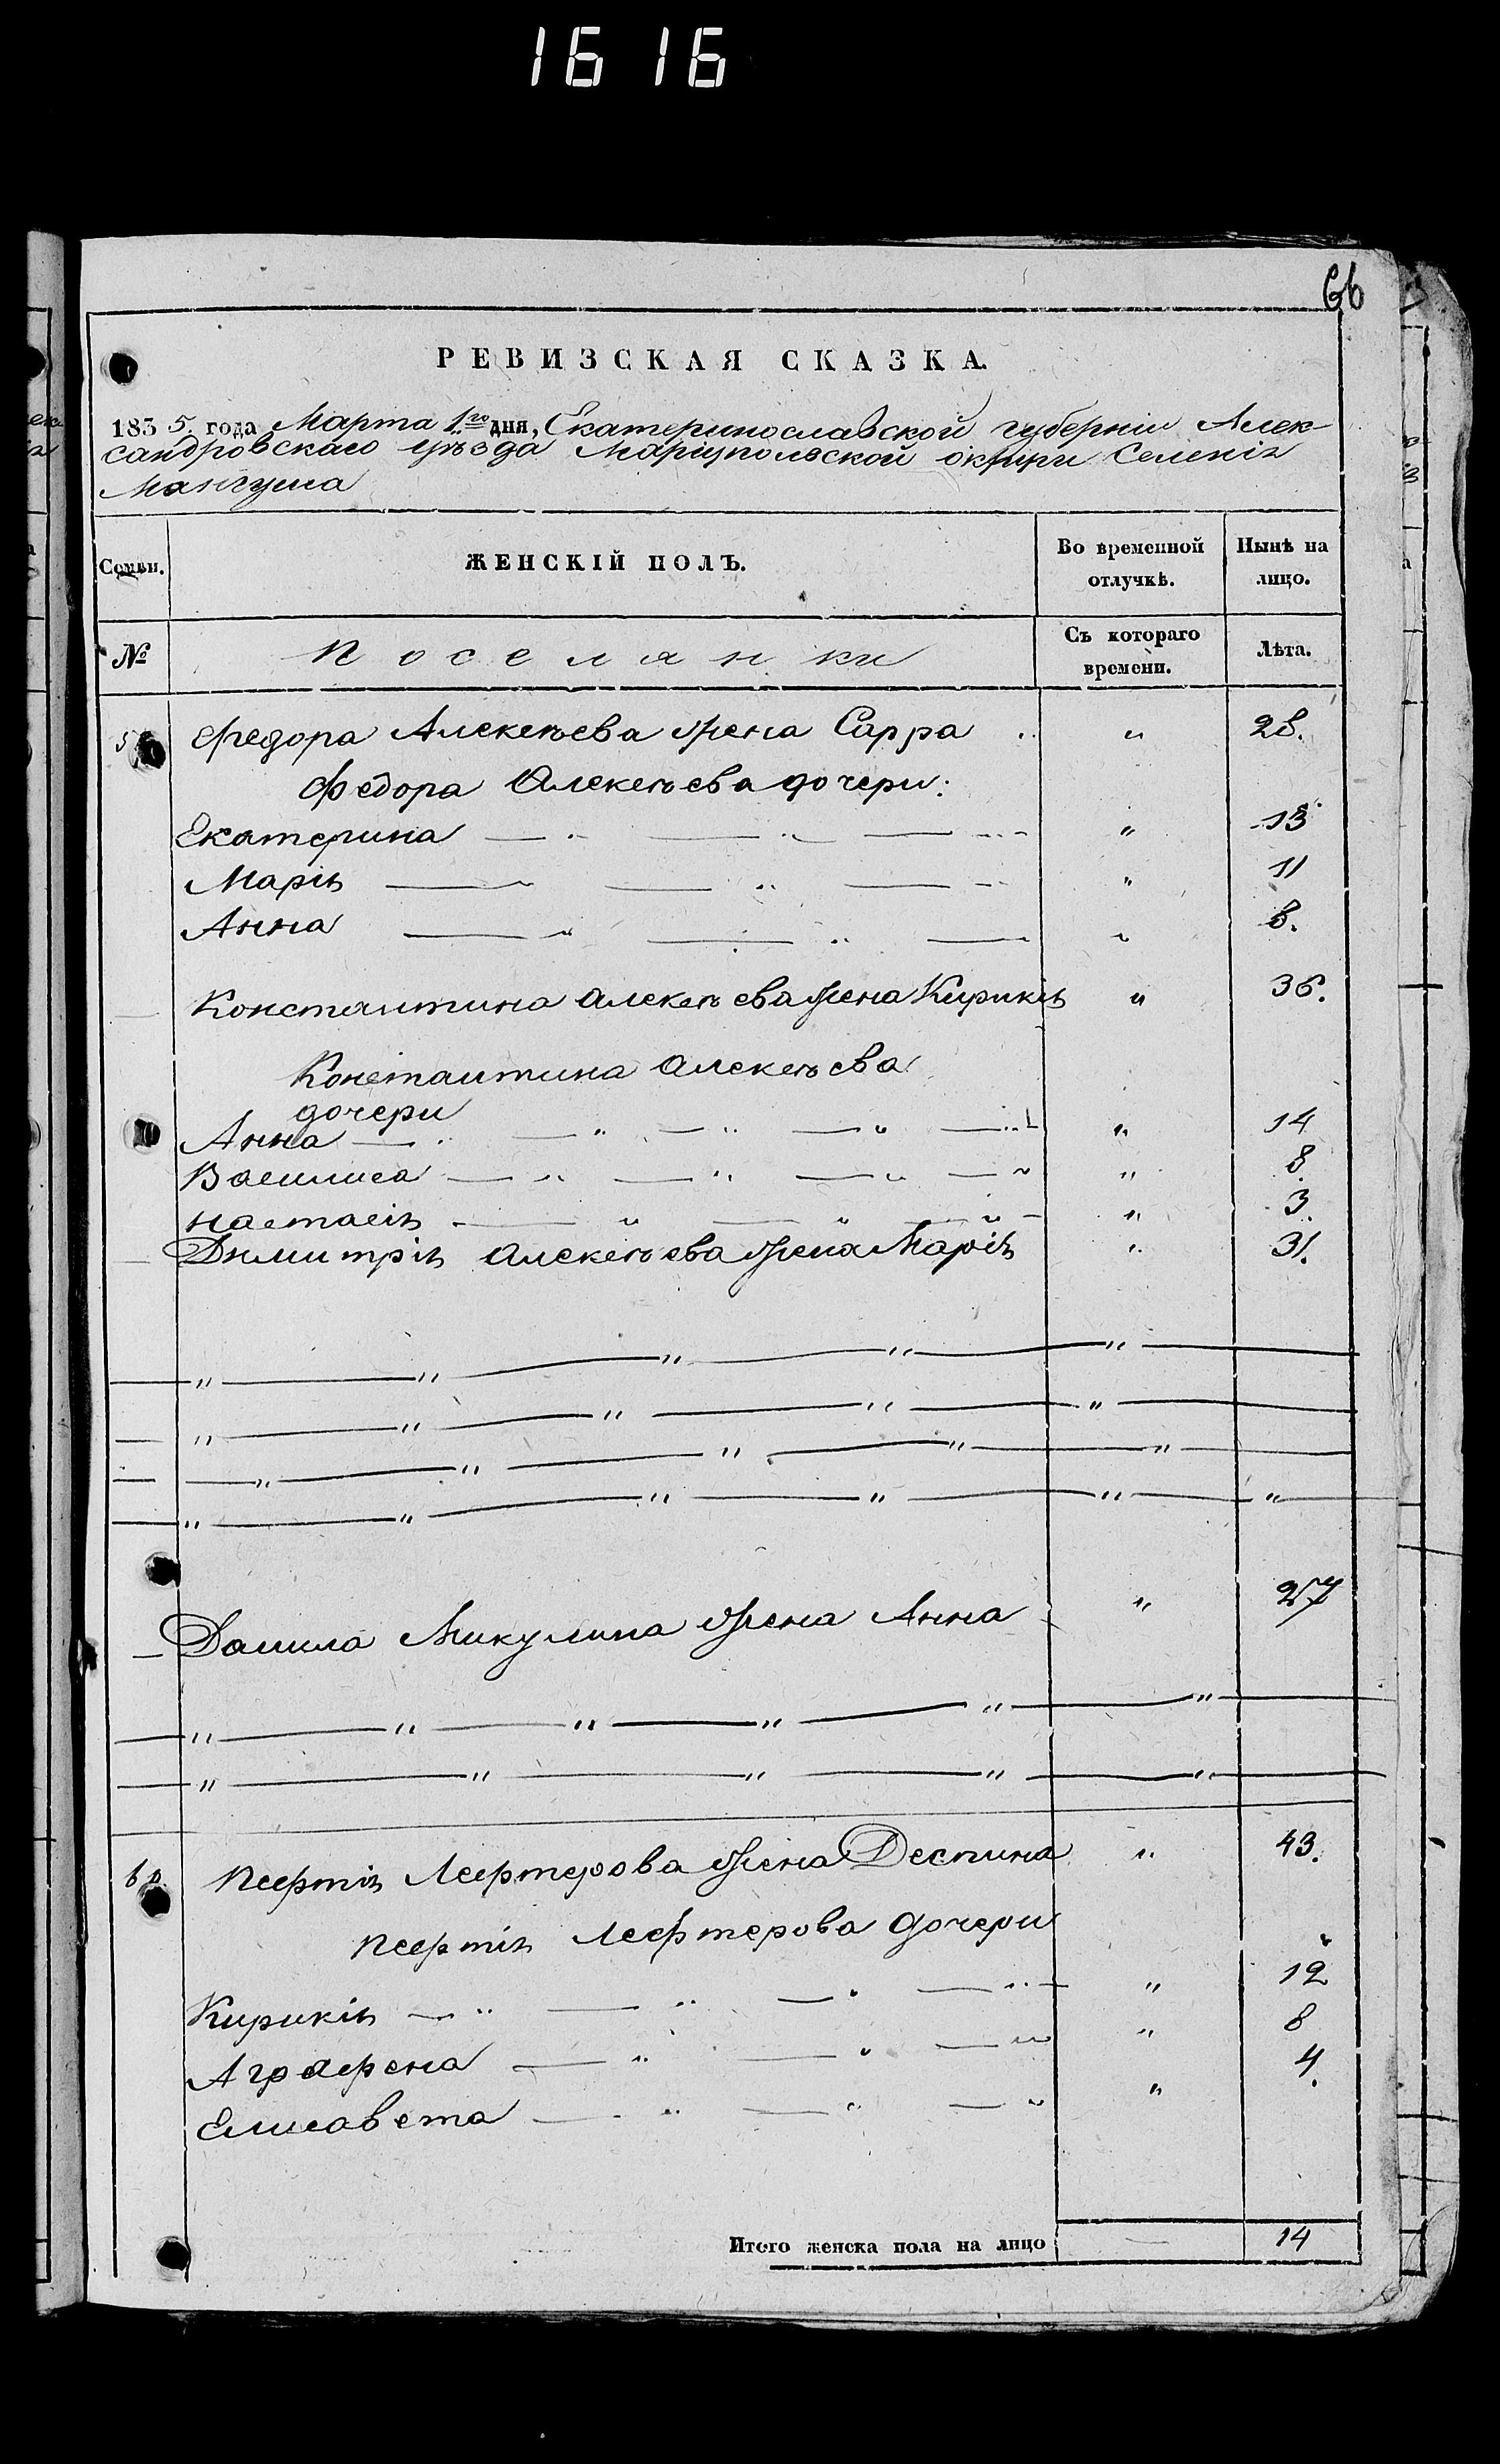 1616
66
РЕВИЗСКАЯ СКАЗКА.
1835. года Марта 1го дня, Екатеринославской губернии Алек-
сандровскаго уѣзда Маріупольской округи Селенія
Мангуша
Семьи. ЖЕНСКІЙ ПОЛЪ. Во временной отлучкѣ. Нынѣ на лицо.
№ Поселянки Съ котораго времени. Лѣта.
Федора Алексѣева жена Сарра " 28.
Федора Алексѣева дочери:
Екатерина " 13
Марія " 11
Анна " 8.
Константина Алексѣева жена Кирикія " 36.
Константина Алексѣева
дочери
Анна " 14
Василиса " 8
Настасія " 3.
Дмитрія Алексѣева жена Марія " 31.
Данила Микулина жена Анна " 27
60. Пефтія Лефтерова жена Деспина " 43.
Пефтія Лефтерова дочери
Кирикія " 12
Аграфена " 8
Елисавета " 4.
Итого женска пола на лицо — 14